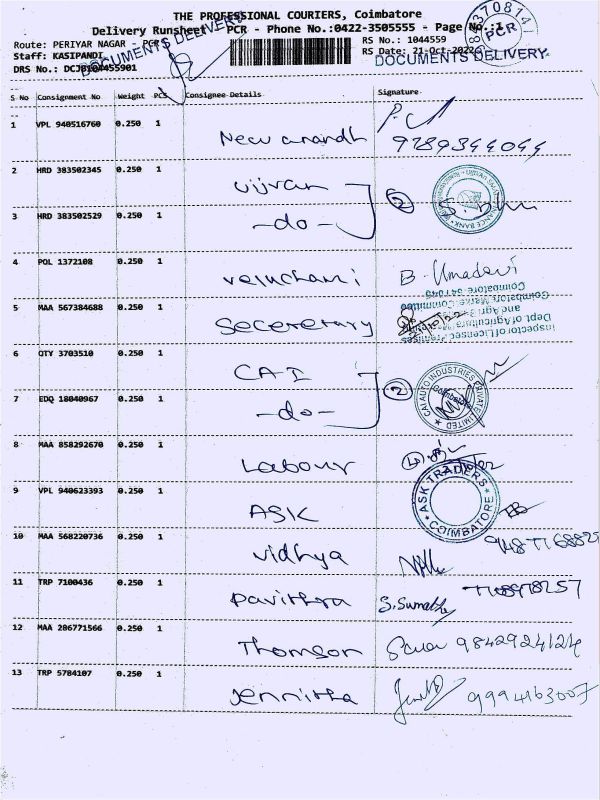 THE PROFESSIONAL COURIERS, Coimbatore
Delivery Runsheet - PCR - Phone No.:0422-3505555 - Page No.:1
Route: PERIYAR NAGAR - PCR
RS No.: 1044559
Staff: KASIPANDI
RS Date: 21-Oct-2022
DOCUMENTS DELIVERY
DOCUMENTS DELIVERY
PCR
S No Consignment No Weight PCS Consignee Details Signature
1 VPL 940516760 0.250 1 New anandh 9789344044
2 HRD 383502345 0.250 1 vijvan 2
3 HRD 383502529 0.250 1 -do-
4 POL 1372108 0.250 1 veluchami B. Umadevi
Coimbatore 641043
Coimbatore Market Committee
5 MAA 567384688 0.250 1 Seceretary
Dept of Agriculture
Inspector of Licensed Premises
6 QTY 3703510 0.250 1 CAI 2
CAI AUTO INDUSTRIES PRIVATE LIMITED
Coimbatore
7 EDQ 18040967 0.250 1 -do-
8 MAA 858292670 0.250 1 Labour
9 VPL 940623393 0.250 1 ASK
ASK TRADERS COIMBATORE
10 MAA 568220736 0.250 1 vidhya
11 TRP 7100436 0.250 1 Pavithra S. Sumathy
12 MAA 286771566 0.250 1 Thomson 9842924124
13 TRP 5784107 0.250 1 Jennitha 9994163007